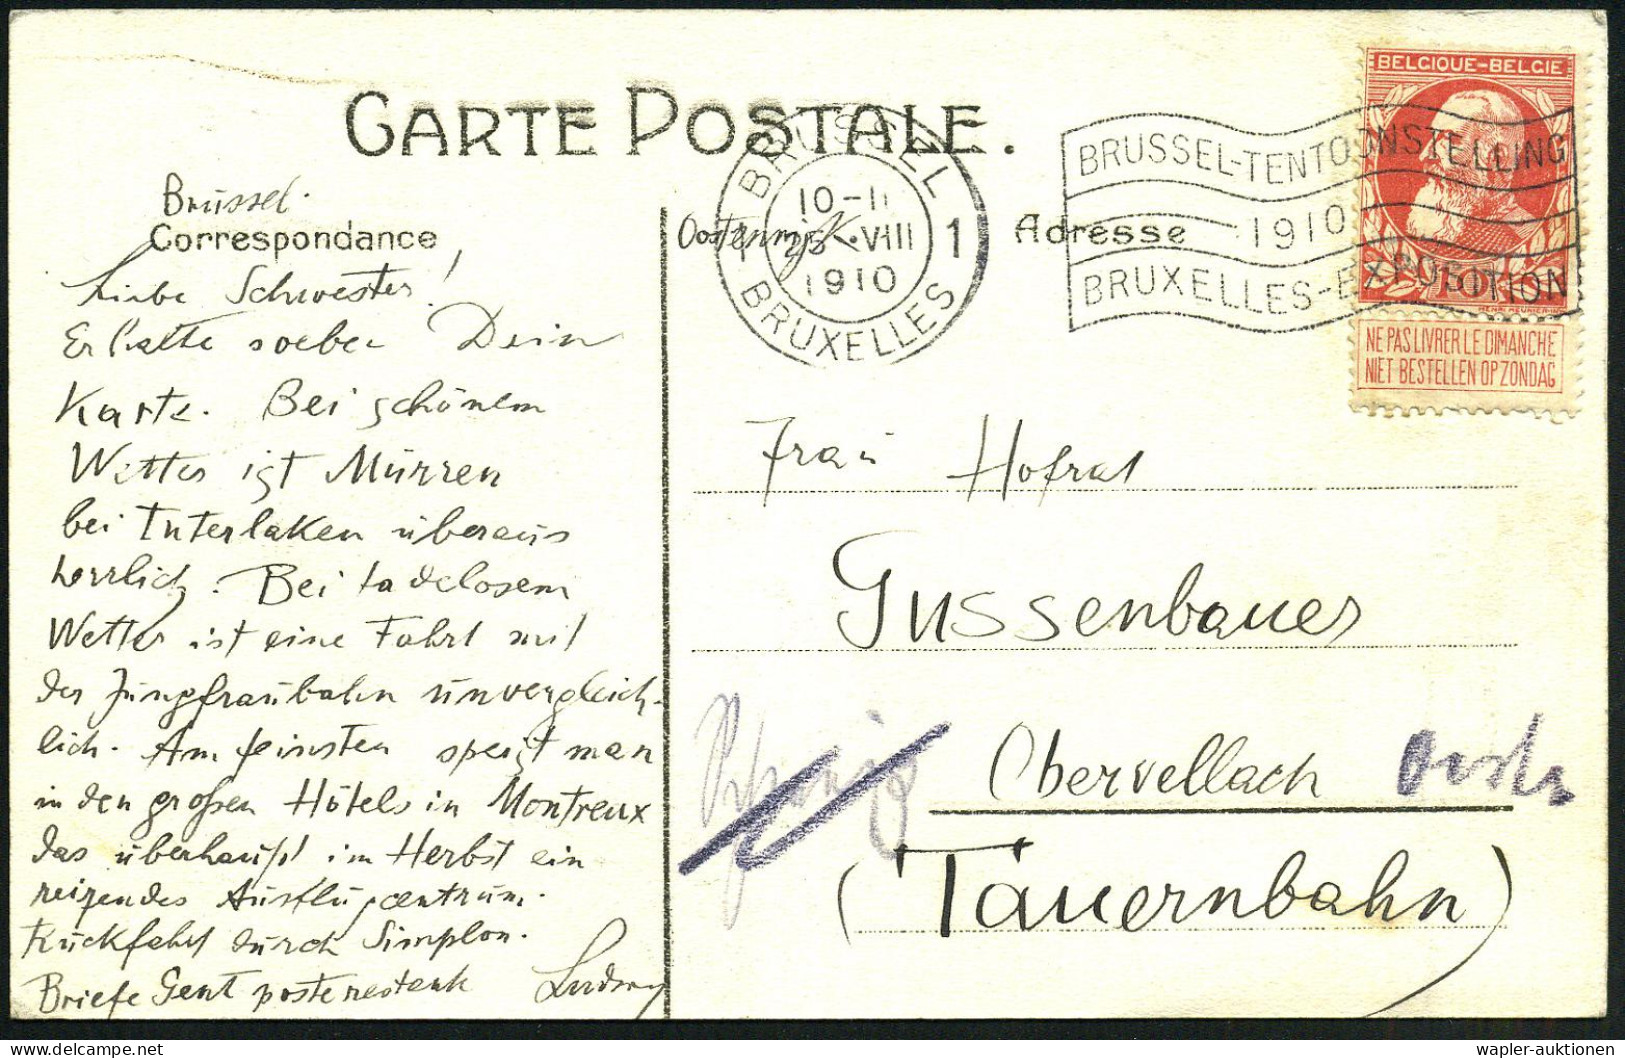 CARTE POSTALE.
Brüssel.
Correspondance
Liebe Schwester!
Erhalte soeben Dein
Karte. Bei schönem
Wetter ist Mürren
bei Interlaken überaus
herrlich. Bei tadelosem
Wetter ist eine Fahrt mit
der Jungfraubahn unvergleich-
lich. Am feinsten speist man
in den großen Hôtels in Montreux
das überhaupt im Herbst ein
reizendes Ausflugcentrum.
Rückfahrt durch Simplon.
Briefe Gent poste restank Ludwig
BRUSSEL
10-11
25 VIII 1
1910
BRUXELLES
BRUSSEL-TENTOONSTELLING
1910
BRUXELLES-EXPOSITION
BELGIQUE-BELGIE
10
HENRI MEUNIER-INV
NE PAS LIVRER LE DIMANCHE
NIET BESTELLEN OP ZONDAG
Adresse
Frau Hofrat
Gussenbauer
Obervellach
(Tauernbahn)
wapler-auktionen